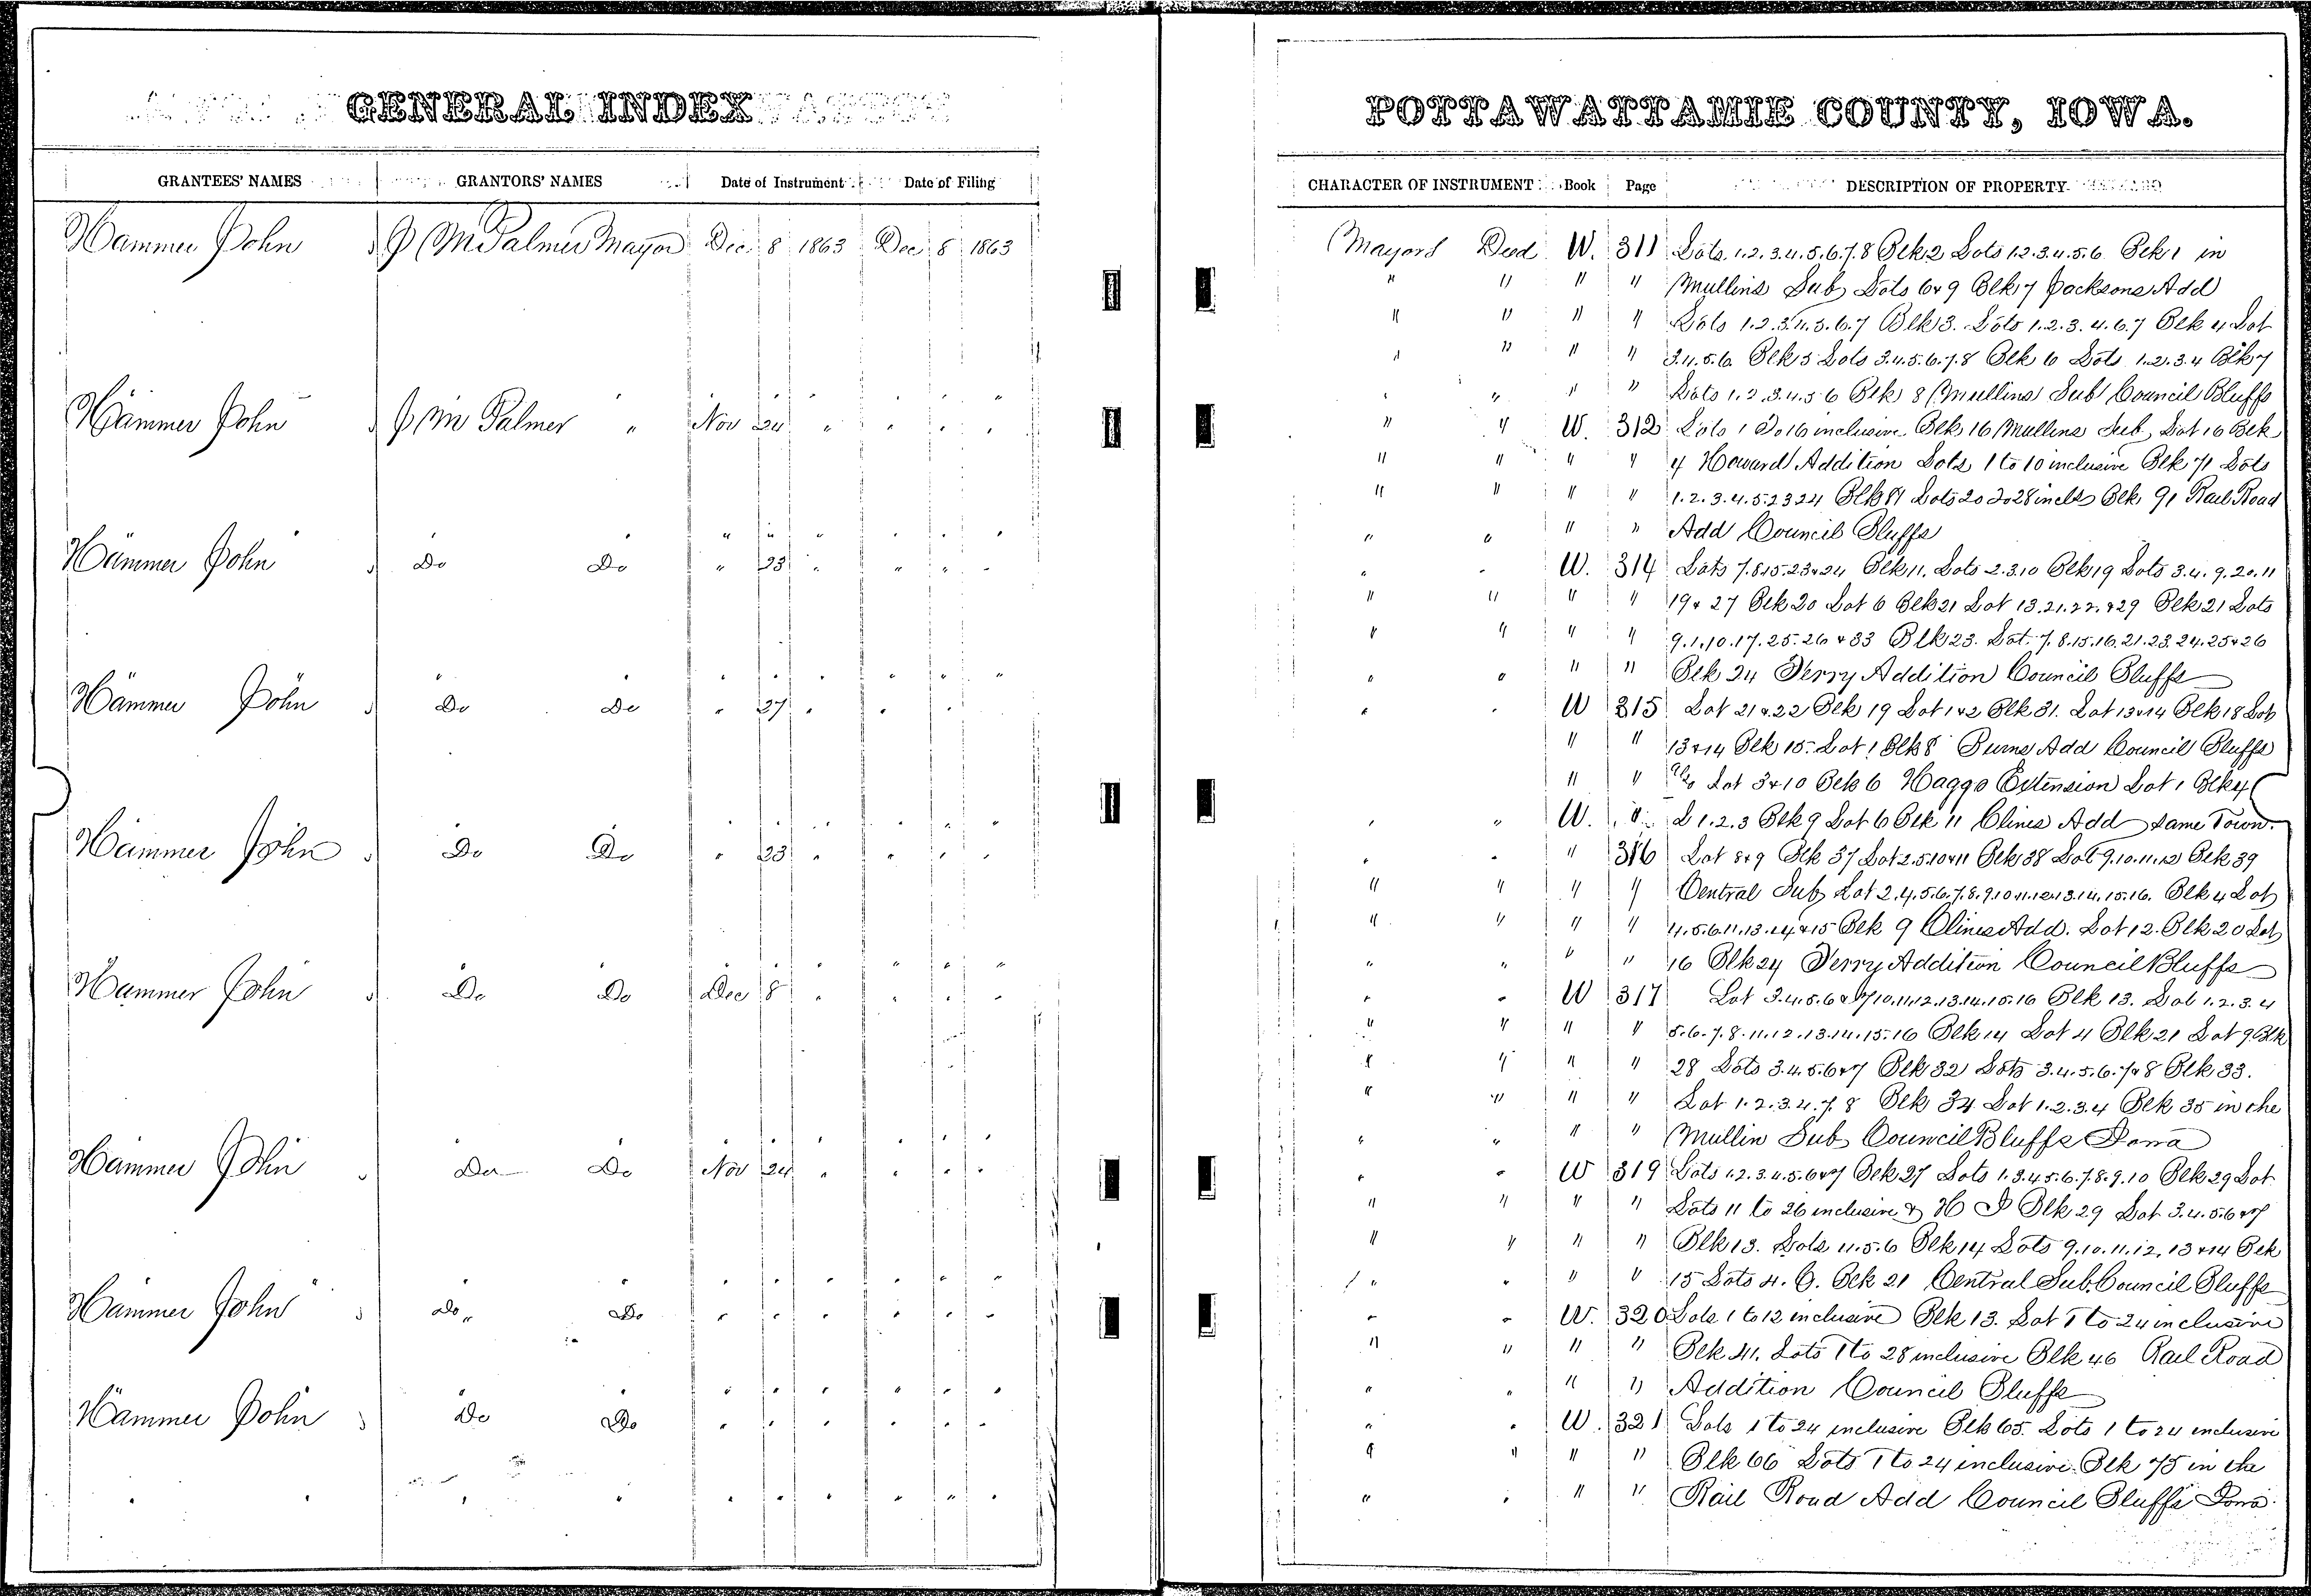 GENERAL INDEX
GRANTEES' NAMES GRANTORS' NAMES Date of Instrument Date of Filing
Hammer John J M Palmer Mayor Dec 8 1863 Dec 8 1863
Hammer John J M Palmer " Nov 24 " " " "
Hammer John Do Do " 23 " " " "
Hammer John Do Do " 27 " " "
Hammer John Do Do " 23 " " " "
Hammer John Do Do Dec 8 " " " "
Hammer John Do Do Nov 24 " " " "
Hammer John Do " Do " " " " " "
Hammer John Do Do " " " " " "
POTTAWATTAMIE COUNTY, IOWA.
CHARACTER OF INSTRUMENT Book Page DESCRIPTION OF PROPERTY
Mayors Deed W. 311 Lots 1.2.3.4.5.6.7.8 Blk 2 Lots 1.2.3.4.5.6 Blk 1 in
" " " " Mullins Sub Lots 6 & 9 Blk 7 Jacksons Add
" " " " Lots 1.2.3.4.5.6.7 Blk 3. Lots 1.2.3.4.6.7 Blk 4 Lot
" " " " 3.4.5.6. Blk 5 Lots 3.4.5.6.7.8 Blk 6 Lots 1.2.3.4 Blk 7
" " " " Lots 1.2.3.4.5 6 Blk 8 Mullins Sub Council Bluffs
" " W. 312 Lots 1 To 16 inclusive Blk 16 Mullins Sub Lot 16 Blk
" " " " 4 Howard Addition Lots 1 to 10 inclusive Blk 71 Lots
" " " " 1.2.3.4.5.23 24 Blk 81 Lots 20 To 28 incls Blk 91 Rail Road
" " " " Add Council Bluffs
" " W. 314 Lots 7.8.15.23 & 24 Blk 11. Lots 2.3.10 Blk 19 Lots 3.4.9.20.11
" " " " 19 & 27 Blk 20 Lot 6 Blk 21 Lot 13.21.22. & 29 Blk 21 Lots
" " " " 9.1.10.17.25.26 & 33 Blk 23. Lot. 7.8.15.16.21.23.24.25 & 26
" " " " Blk 24 Terry Addition Council Bluffs
" " W 315 Lot 21 & 22 Blk 19 Lot 1 & 2 Blk 31. Lot 13 & 14 Blk 18 Lot
" " 13 & 14 Blk 15. Lot 1 Blk 8 Burns Add Council Bluffs
" " Lot 3 & 10 Blk 6 Haggs Extension Lot 1 Blk 4
" " W. " L 1.2.3 Blk 9 Lot 6 Blk 11 Clines Add same Town.
" " " 316 Lot 8 & 9 Blk 37 Lot 2.5.10 & 11 Blk 38 Lot 9.10.11.12 Blk 39
" " " " Central Sub Lot 2.4.5.6.7.8.9.10.11.12.13.14.15.16. Blk 4 Lot
" " " " 4.5.6.11.13.14 & 15 Blk 9 Clines Add. Lot 12. Blk 20 Lot
" " " " 16 Blk 24 Terry Addition Council Bluffs
" " W 317 Lot 3.4.5.6 & 9/10.11.12.13.14.15.16 Blk 13. Lot 1.2.3.4
" " " " 5.6.7.8.11.12.13.14.15.16 Blk 14 Lot 4 Blk 21 Lot 9 Blk
" " " " 28 Lots 3.4.5.6 & 7 Blk 32 Lots 3.4.5.6.7 & 8 Blk 33.
" " " " Lot 1.2.3.4.7.8 Blk 34 Lot 1.2.3.4 Blk 35 in the
" " " " Mullin Sub Council Bluffs Iowa
" " W 319 Lots 1.2.3.4.5.6 & 7 Blk 27 Lots 1.3.4.5.6.7.8.9.10 Blk 29 Lot
" " " " Lots 11 to 26 inclusive & H I Blk 29 Lot 3.4.5.6 & 7
" " " " Blk 13. Lots 4.5.6 Blk 14 Lots 9.10.11.12.13 & 14 Blk
" " " " 15 Lots 4. Blk 21 Central Sub. Council Bluffs
" " W. 320 Lots 1 to 12 inclusive Blk 13. Lot 1 to 24 inclusive
" " " " Blk 41. Lots 1 to 28 inclusive Blk 46 Rail Road
" " " " Addition Council Bluffs
" " W. 321 Lots 1 to 24 inclusive Blk 65. Lots 1 to 24 inclusive
" " " " Blk 66 Lots 1 to 24 inclusive Blk 75 in the
" " " " Rail Road Add Council Bluffs Iowa.